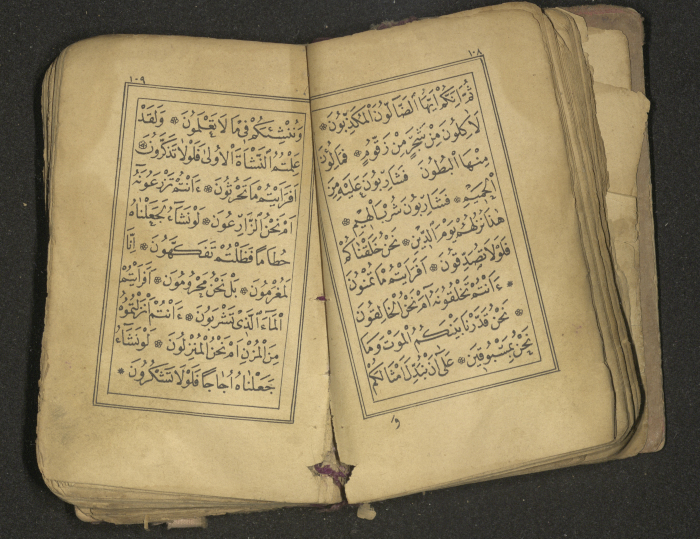 ١٠٨
ثُمَّ اِنَّكُمْ اَيُّهَا الضَّٓالُّونَ الْمُكَذِّبُونَ ❊
لَاٰكِلُونَ مِنْ شَجَرٍ مِنْ زَقُّومٍ ❊ فَمَالِؤُنَ
مِنْهَا الْبُطُونَ فَشَارِبُونَ عَلَيْهِ مِنَ
الْحَمِيمِ ❊ فَشَارِبُونَ شُرْبَ الْهِيمِ ❊
هٰذَا نُزُلُهُمْ يَوْمَ الدِّينِ ❊ نَحْنُ خَلَقْنَاكُمْ
فَلَوْلَا تُصَدِّقُونَ ❊ اَفَرَاَيْتُمْ مَا تُمْنُونَ
❊ ءَاَنْتُمْ تَخْلُقُونَهُ اَمْ نَحْنُ الْخَالِقُونَ
❊ نَحْنُ قَدَّرْنَا بَيْنَكُمُ الْمَوْتَ وَمَا
نَحْنُ بِمَسْبُوقِينَ ❊ عَلٰٓى اَنْ نُبَدِّلَ اَمْثَالَكُمْ
و
١٠٩
وَنُنْشِئَكُمْ فِى مَا لَا تَعْلَمُونَ ❊ وَلَقَدْ
عَلِمْتُمُ النَّشْاَةَ الْاُولٰى فَلَوْلَا تَذَكَّرُونَ ❊
اَفَرَاَيْتُمْ مَا تَحْرُثُونَ ❊ ءَاَنْتُمْ تَزْرَعُونَهُٓ
اَمْ نَحْنُ الزَّارِعُونَ ❊ لَوْ نَشَٓاءُ لَجَعَلْنَاهُ
حُطَامًا فَظَلْتُمْ تَفَكَّهُونَ ❊ اِنَّا
لَمُغْرَمُونَ ❊ بَلْ نَحْنُ مَحْرُومُونَ ❊ اَفَرَاَيْتُمُ
الْمَٓاءَ الَّذِى تَشْرَبُونَ ❊ ءَاَنْتُمْ اَنْزَلْتُمُوهُ
مِنَ الْمُزْنِ اَمْ نَحْنُ الْمُنْزِلُونَ ❊ لَوْ نَشَٓاءُ
جَعَلْنَاهُ اُجَاجًا فَلَوْلَا تَشْكُرُونَ ❊